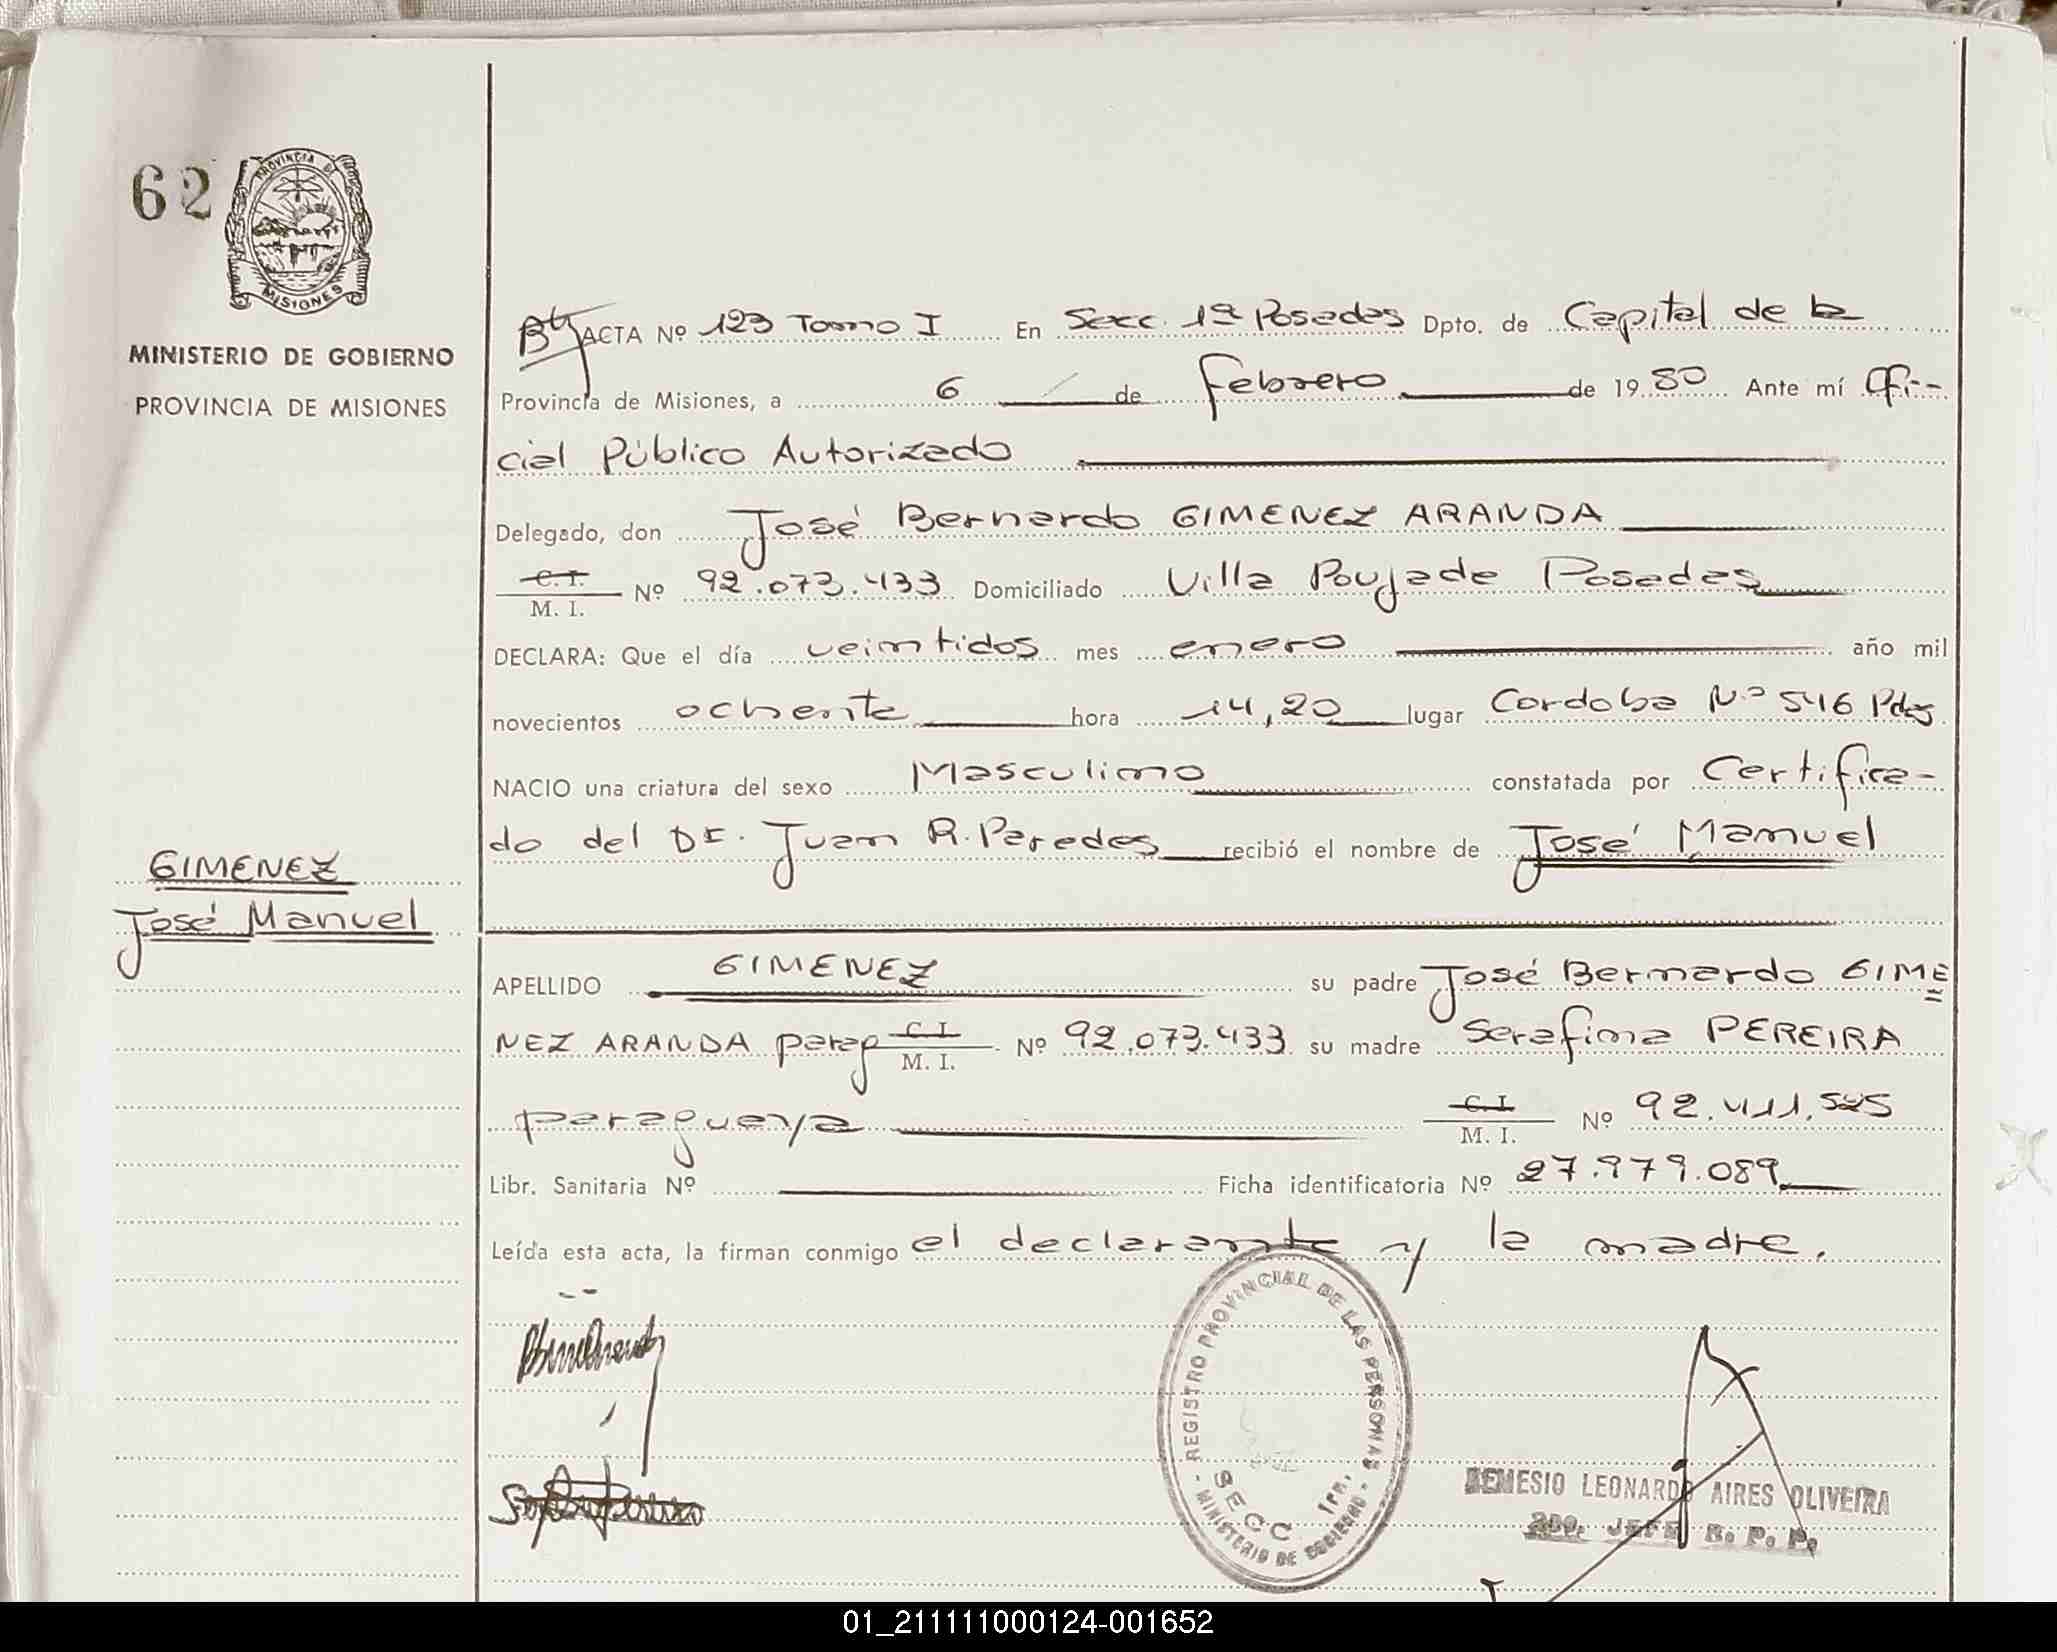 62
PROVINCIA DE
MISIONES
MINISTERIO DE GOBIERNO
PROVINCIA DE MISIONES
GIMENEZ
José Manuel
ACTA Nº 123 Tomo I En Secc. 1ª Posadas Dpto. de Capital de la
Provincia de Misiones, a 6 de febrero de 1980 Ante mí Ofi-
cial Público Autorizado
Delegado, don José Bernardo GIMENEZ ARANDA
C.I.
M. I. Nº 92.073.433 Domiciliado Villa Poujade Posadas
DECLARA: Que el día veintidos mes enero año mil
novecientos ochenta hora 14,20 lugar Cordoba Nº 546 Pdas
NACIO una criatura del sexo Masculino constatada por Certifica-
do del Dr. Juan R. Paredes recibió el nombre de José Manuel
APELLIDO GIMENEZ su padre José Bernardo GIME
NEZ ARANDA parag C.I. M. I. Nº 92.073.433 su madre Serafina PEREIRA
paraguaya C.I. M. I. Nº 92.411.525
Libr. Sanitaria Nº Ficha identificatoria Nº 27.979.089
Leída esta acta, la firman conmigo el declarante y la madre.
REGISTRO PROVINCIAL DE LAS PERSONAS
SECC. 1ra.
- MINISTERIO DE GOBIERNO -
NEMESIO LEONARDO AIRES OLIVEIRA
JEFE R. P. P.
01_211111000124-001652